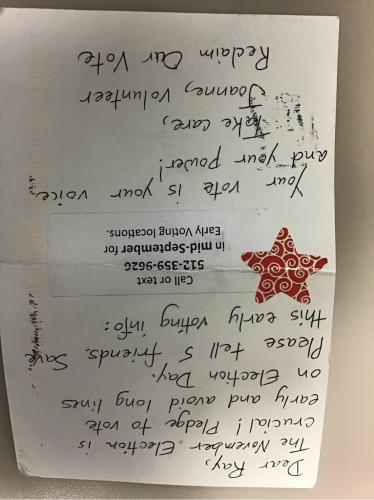 Dear Ray,
The November Election is
crucial! Pledge to vote
early and avoid long lines
on Election Day.
Please tell 5 friends. Save
this early voting info:
Call or text
512-359-9626
in mid-September for
Early Voting locations.
Your vote is your voice
and your power!
Take care,
Joanne, Volunteer
Reclaim Our Vote